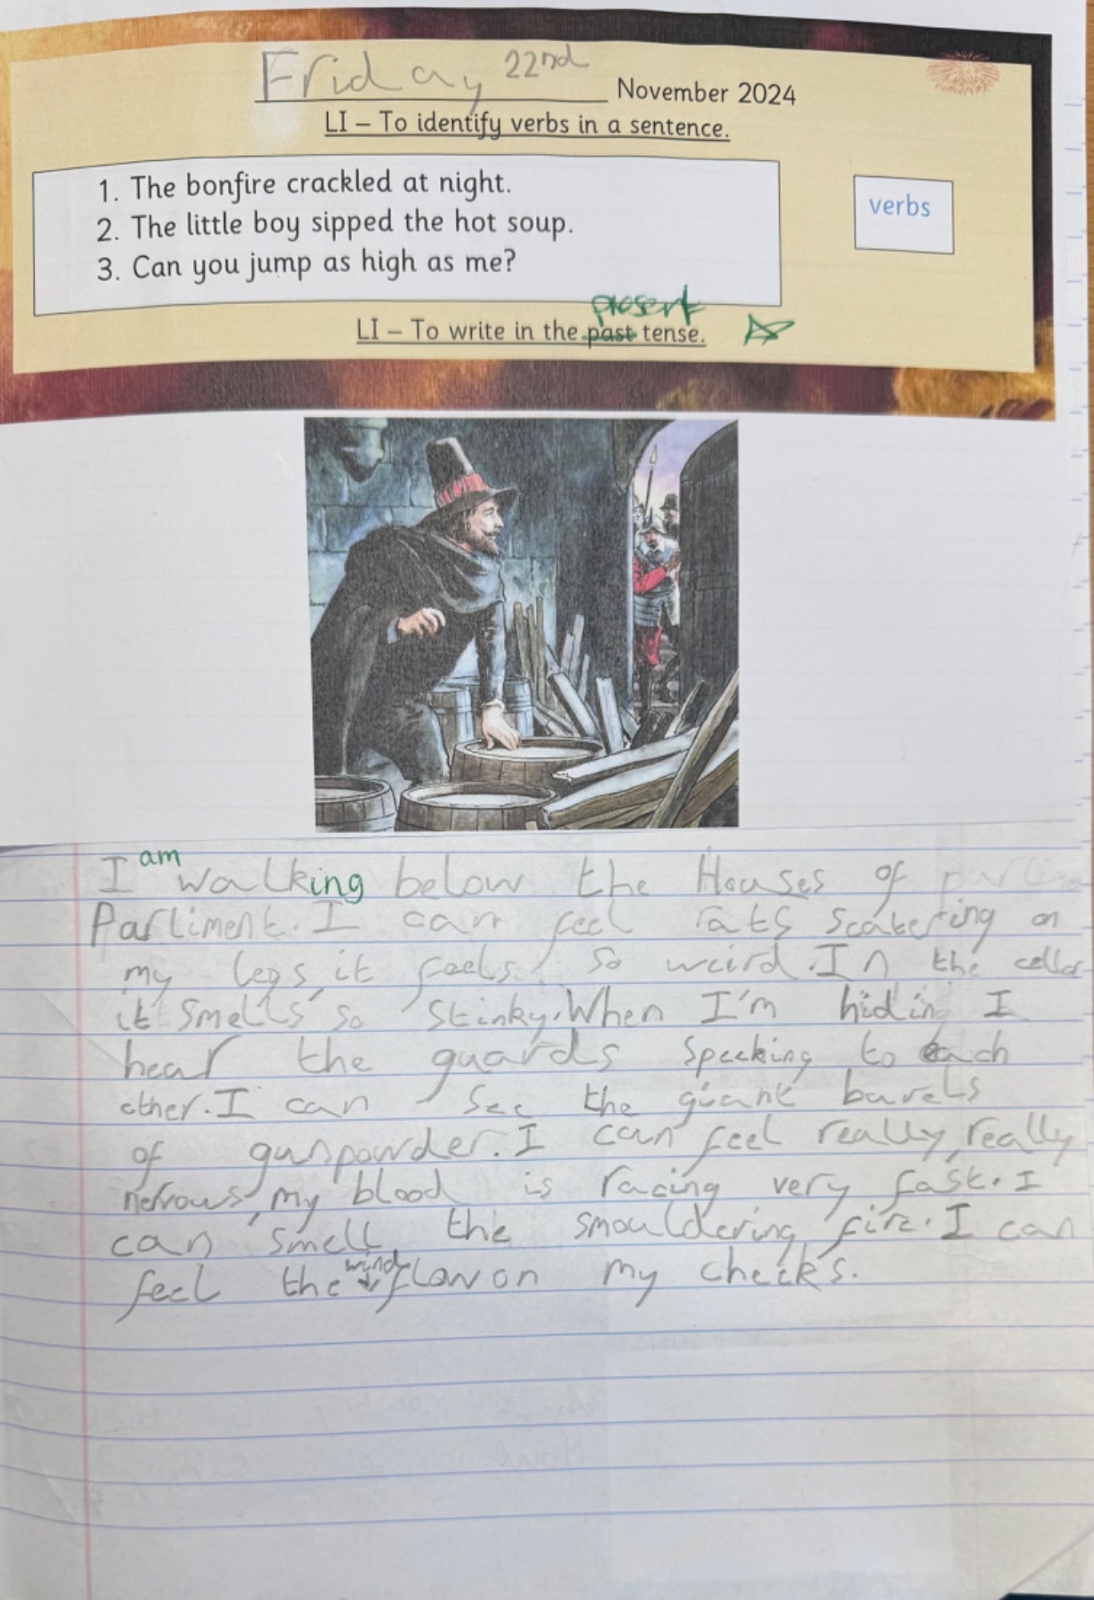 Friday 22nd November 2024
LI – To identify verbs in a sentence.
1. The bonfire crackled at night.
2. The little boy sipped the hot soup.
3. Can you jump as high as me?
verbs
present
LI – To write in the past tense.
I am walking below the Houses of
Parliment. I can feel rats scatering on
my legs, it feels so weird. In the cellar
it smells so stinky. When I'm hiding I
hear the guards specking to each
other. I can see the giant barels
of gunpowder. I can feel really, really
nervous, my blood is racing very fast. I
can smell the smouldering fire. I can
feel the wind flow on my cheeks.